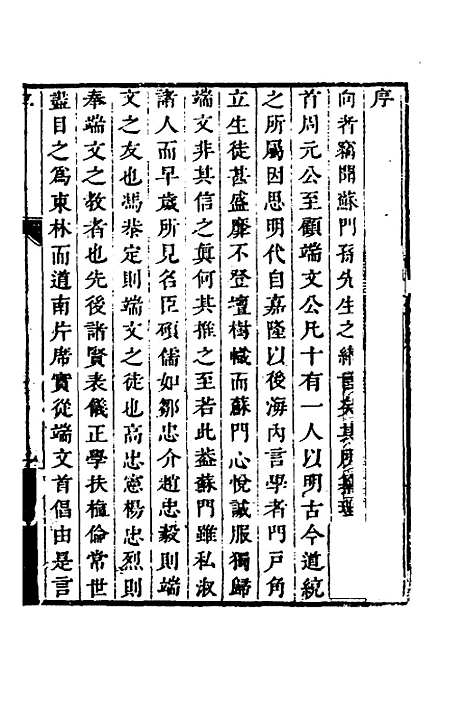 序
向者竊聞蘇門孫先生之緒言矣其所
首周元公至顧端文公凡十有一人以明古今道統
之所屬因思明代自嘉隆以後海內言學者門戶角
立生徒甚盛靡不登壇樹幟而蘇門心悅誠服獨歸
端文非其信之眞何其推之至若此葢蘇門雖私淑
諸人而早歲所見名臣碩儒如鄒忠介趙忠毅則端
文之友也馮恭定則端文之徒也高忠憲楊忠烈則
奉端文之敎者也先後諸賢表儀正學扶植倫常世
葢目之爲東林而道南片席實從端文首倡由是言